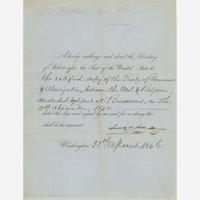 I hereby authorize and direct the Secretary
of State to affix the Seal of the United States to
the ratified copy of the Treaty of Commerce
& Navigation, between the U. S. & Belgium,
concluded & signed at Brussels, on the
10th November, 1845
dated this day and signed by me and for so doing this
shall be his warrant.
Washington 30th March 1846.